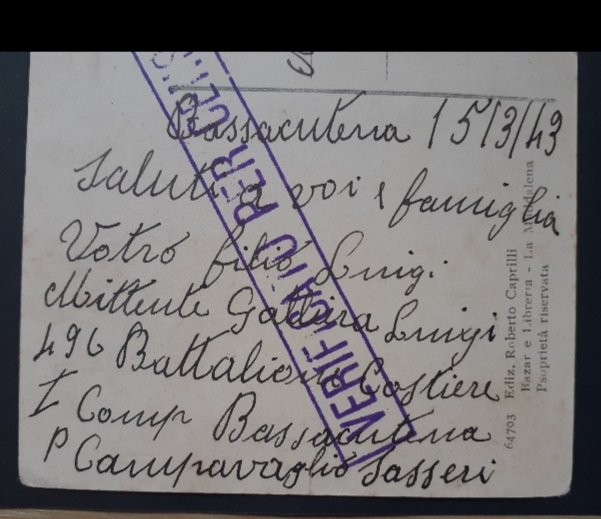 Bassacutena 15/3/43
Saluti a voi e famiglia
Votro filio Luigi.
Mittente Gallura Luigi
496 Battaliono Costiere
I Comp Bassacutena
P Campavaglio Sasseri
VERIFICATO PER CENS
64703 Ediz. Roberto Caprilli
Bazar e Libreria - La Maddalena
Psoprietà riservata